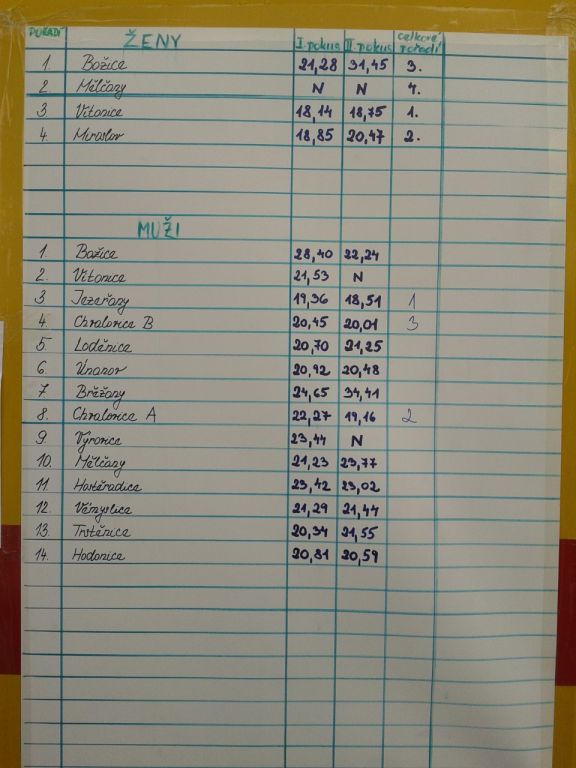 POŘADÍ ŽENY I. pokus II. pokus celkové pořadí
1. Božice 21,28 31,45 3.
2. Mělčany N N 4.
3 Vítonice 18,14 18,75 1.
4. Miroslav 18,85 20,47 2.
MUŽI
1. Božice 28,40 22,24
2. Vítonice 21,53 N
3 Jezeřany 19,36 18,51 1
4. Chvalovice B 20,45 20,01 3
5. Loděnice 20,70 21,25
6. Únanov 20,92 20,48
7 Břežany 24,65 34,41
8. Chvalovice A 22,27 19,16 2
9 Výrovice 23,44 N
10. Mělčany 21,23 23,77
11. Hostěradice 23,42 23,02
12. Vémyslice 21,29 21,44
13. Trstěnice 20,34 21,55
14. Hodonice 20,81 20,59